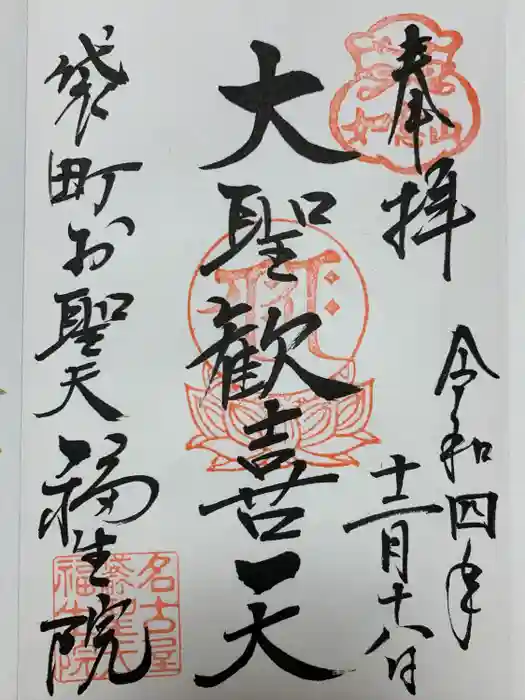 奉拝
如意山
令和四年
十二月十八日
大聖歓喜天
袋町お聖天
福生院
名古屋
福生院